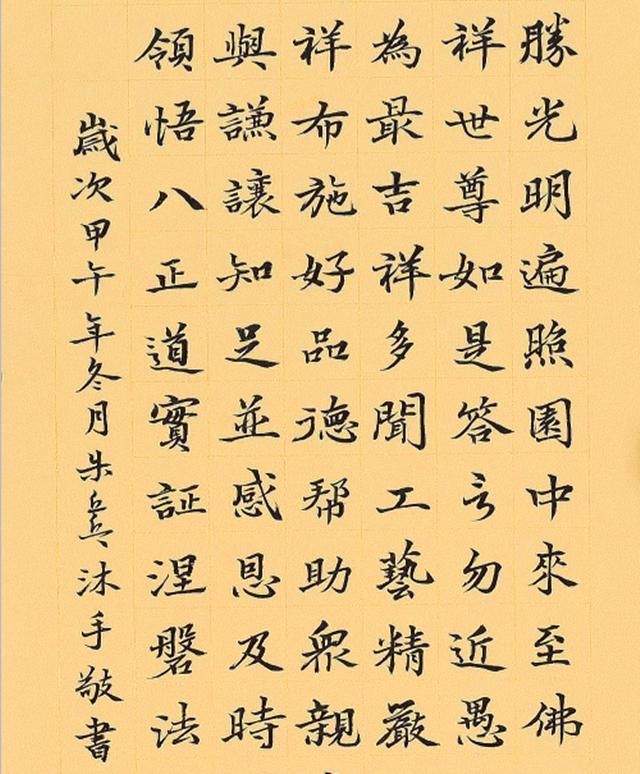 勝光明遍照園中來至佛
祥世尊如是答言勿近愚
為最吉祥多聞工藝精嚴
祥布施好品德帮助衆親
與謙讓知足並感恩及時
領悟八正道實証涅磐法
歲次甲午年冬月朱沐手敬書